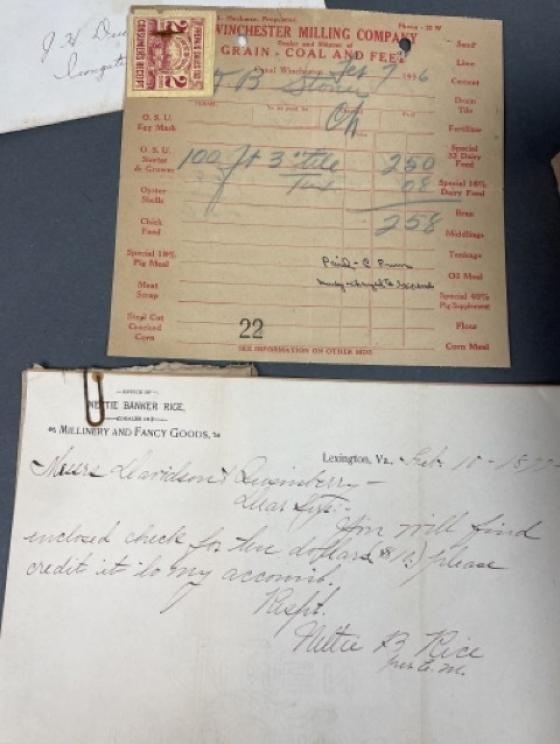 J. H.
2 PREPAID SALES TAX 2
CONSUMER'S RECEIPT
Proprietor
Phone - 22 W
WINCHESTER MILLING COMPANY
Dealer and Shipper of
GRAIN - COAL AND FEED
Canal Winchester, Sep 7 1936
B Stoner
TERMS
To be paid by
Oh
100 ft 3" tile 2 50
Tax 08
2 58
Paid - C
22
SEE INFORMATION ON OTHER SIDE
O. S. U.
Egg Mash
O. S. U.
Starter
& Grower
Oyster
Shells
Chick
Feed
Special 18%
Pig Meal
Meat
Scrap
Steel Cut
Cracked
Corn
Seed
Lime
Cement
Drain
Tile
Fertilizer
Special
32 Dairy
Feed
Special 16%
Dairy Feed
Bran
Middlings
Tankage
Oil Meal
Special 40%
Pig Supplement
Flour
Corn Meal
OFFICE OF
NETTIE BANKER RICE,
DEALER IN
MILLINERY AND FANCY GOODS,
Lexington, Va., Feb. 10 - 18
Messrs Davidson &
Dear Sirs:-
You will find
enclosed check for ten dollars $10) please
credit it to my account.
Respt.
Nettie B Rice
per C. M.